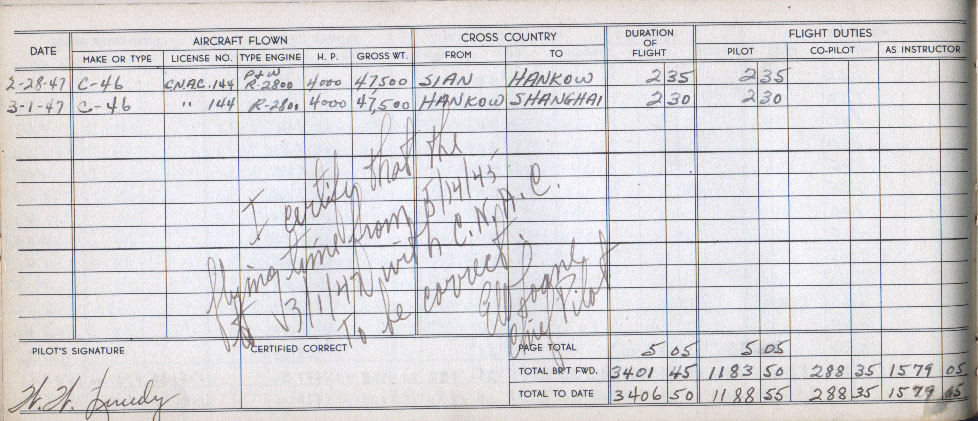 DATE AIRCRAFT FLOWN CROSS COUNTRY DURATION OF FLIGHT FLIGHT DUTIES
MAKE OR TYPE LICENSE NO. TYPE ENGINE H. P. GROSS WT. FROM TO PILOT CO-PILOT AS INSTRUCTOR
2-28-47 C-46 C.N.A.C. 144 P+W R-2800 4000 47,500 SIAN HANKOW 2 35 2 35
3-1-47 C-46 " 144 R-2800 4000 47,500 HANKOW SHANGHAI 2 30 2 30
I certify that the
flying time from 5/14/45
to 3/1/47, with C.N.A.C.
To be correct.
Chief Pilot
PILOT'S SIGNATURE CERTIFIED CORRECT PAGE TOTAL 5 05 5 05
TOTAL BR'T FWD. 3401 45 1183 50 288 35 1579 05
TOTAL TO DATE 3406 50 1188 55 288 35 1579 05
W. W.